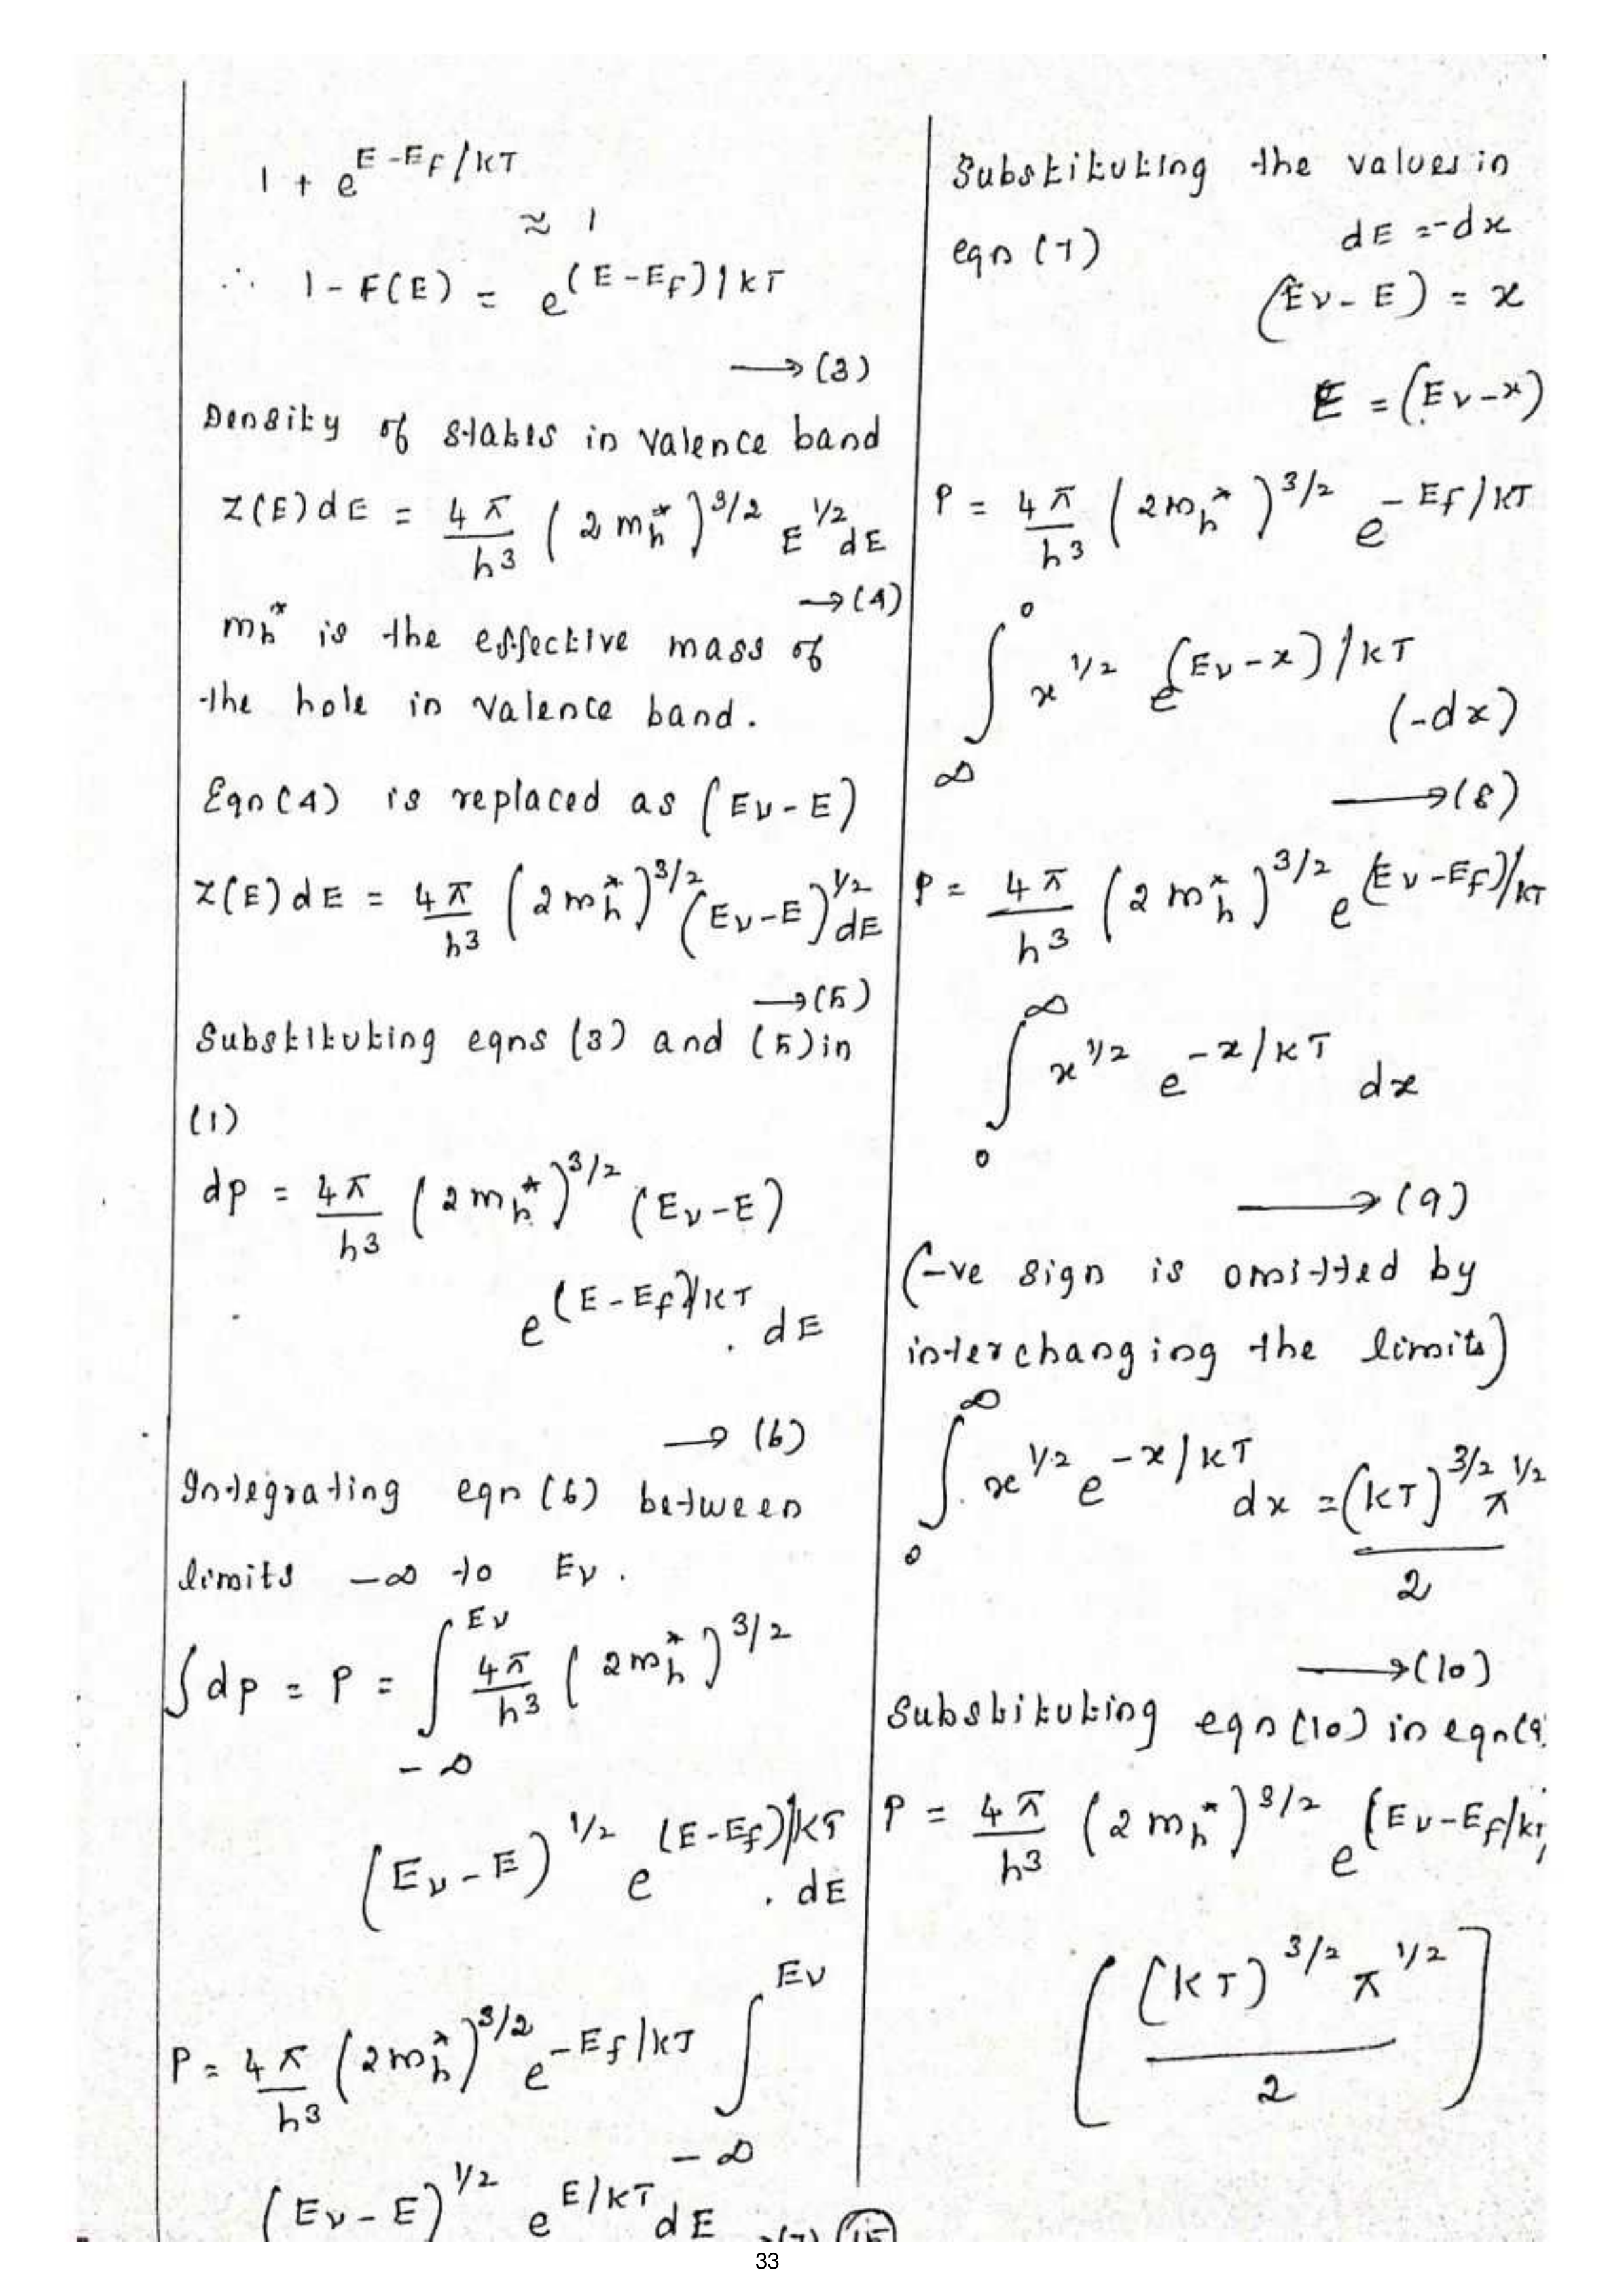 1 + e^{E-E_F/KT}
≈ 1
∴ 1 - F(E) = e^{(E-E_F)/KT}
→ (3)
Density of states in valence band
Z(E)dE = 4π/h³ (2m_h*)^{3/2} E^{1/2} dE
→ (4)
m_h* is the effective mass of
the hole in valence band.
Eqn(4) is replaced as (Ev-E)
Z(E)dE = 4π/h³ (2m_h*)^{3/2} (Ev-E)^{1/2} dE
→ (5)
Substituting eqns (3) and (5) in
(1)
dp = 4π/h³ (2m_h*)^{3/2} (Ev-E)
e^{(E-Ef)/KT} . dE
→ (6)
Integrating eqn (6) between
limits -∞ to Ev.
∫dp = P = ∫_{-∞}^{Ev} 4π/h³ (2m_h*)^{3/2}
(Ev-E)^{1/2} e^{(E-Ef)/KT} . dE
P = 4π/h³ (2m_h*)^{3/2} e^{-Ef/KT} ∫_{-∞}^{Ev}
(Ev-E)^{1/2} e^{E/KT} dE → (7) (15)
Substituting the values in
eqn (7) dE = -dx
(Ev-E) = x
E = (Ev-x)
P = 4π/h³ (2m_h*)^{3/2} e^{-Ef/KT}
∫_{∞}^{0} x^{1/2} e^{(Ev-x)/KT} (-dx)
→ (8)
P = 4π/h³ (2m_h*)^{3/2} e^{(Ev-Ef)/KT}
∫_{0}^{∞} x^{1/2} e^{-x/KT} dx
→ (9)
(-ve sign is omitted by
interchanging the limits)
∫_{0}^{∞} x^{1/2} e^{-x/KT} dx = (KT)^{3/2} π^{1/2} / 2
→ (10)
Substituting eqn(10) in eqn(9
P = 4π/h³ (2m_h*)^{3/2} e^{(Ev-Ef/KT)}
[(KT)^{3/2} π^{1/2} / 2]
33